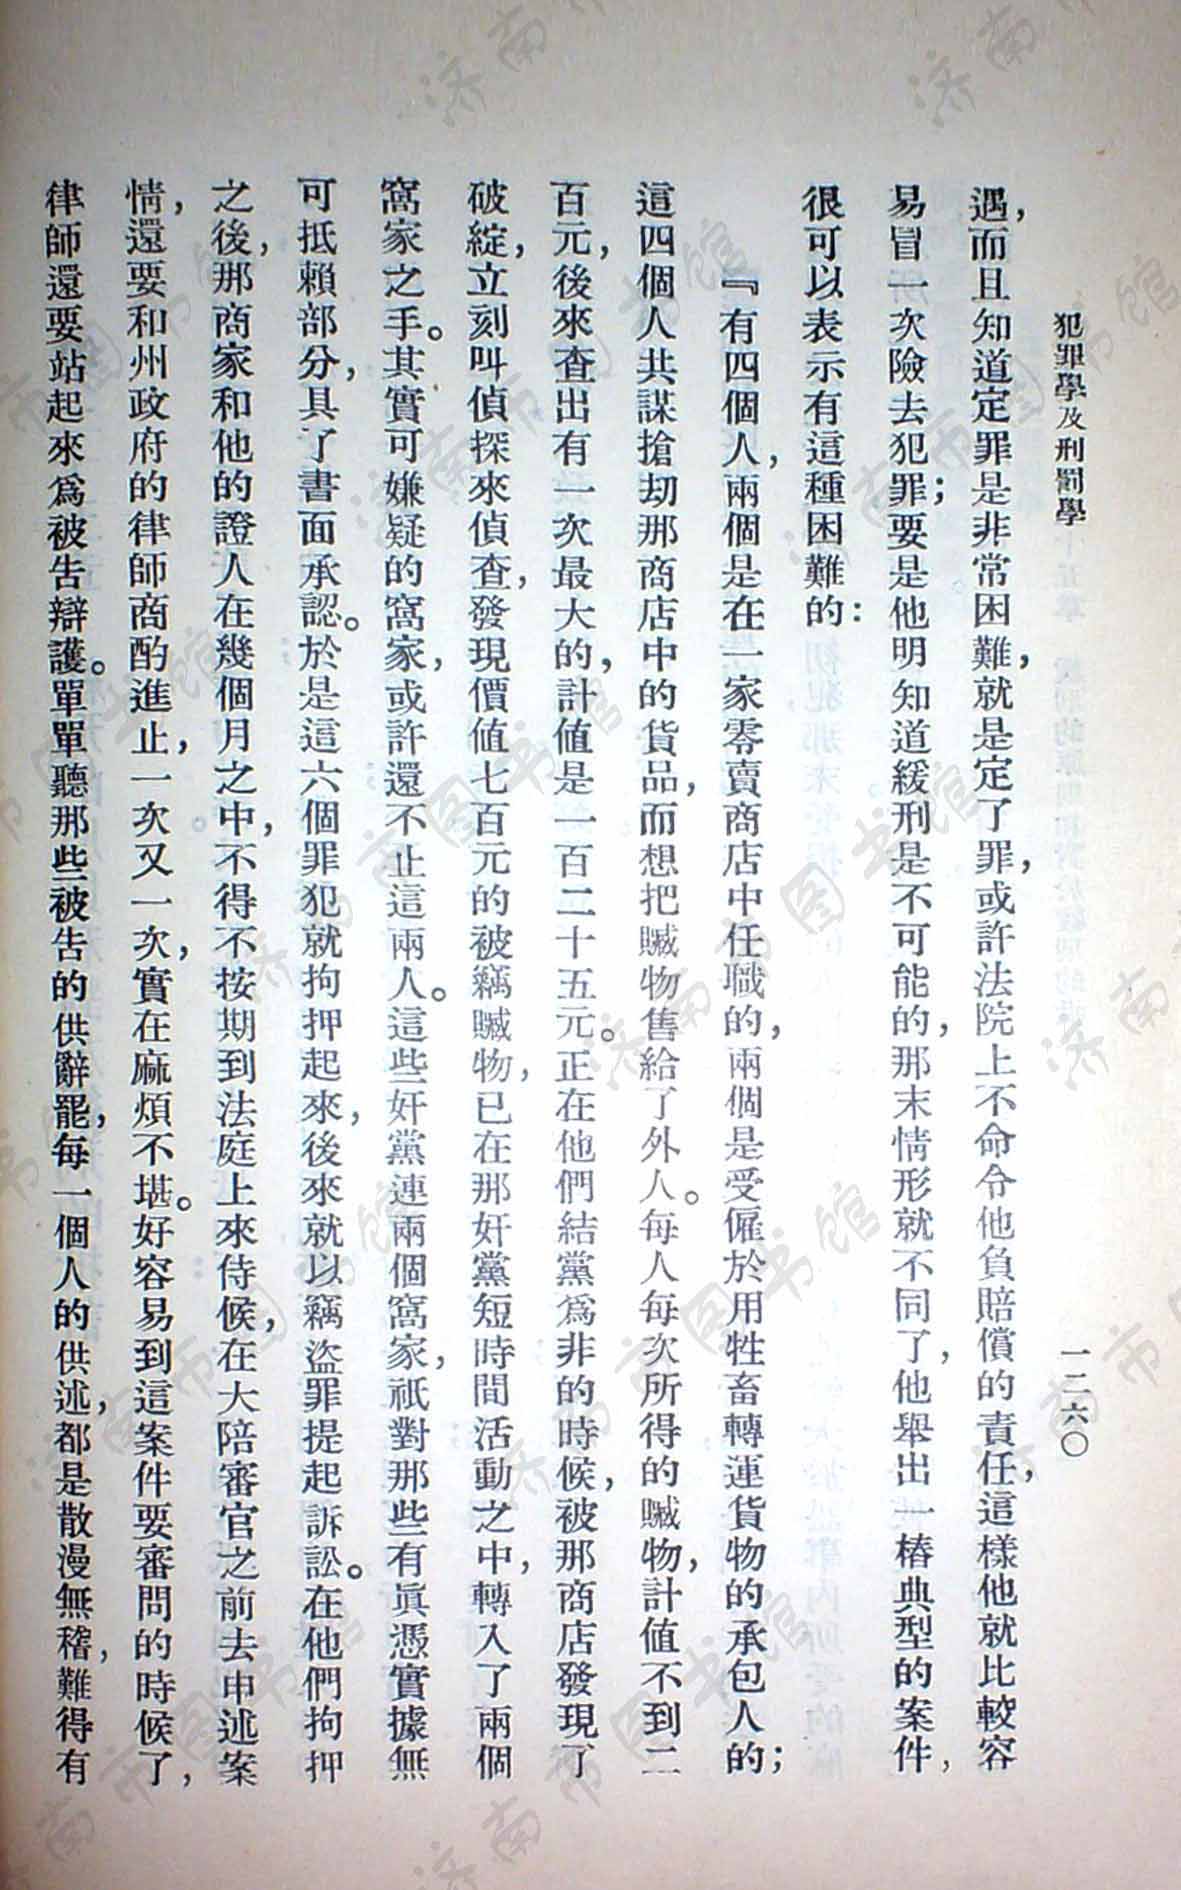 犯罪學及刑罰學
一二六〇
遇，而且知道定罪是非常困難，就是定了罪，或許法院上不命令他負賠償的責任，這樣他就比較容
易冒一次險去犯罪；要是他明知道緩刑是不可能的，那末情形就不同了，他舉出一樁典型的案件，
很可以表示有這種困難的：
『有四個人，兩個是在一家零賣商店中任職的，兩個是受僱於用牲畜轉運貨物的承包人的；
這四個人共謀搶刧那商店中的貨品，而想把贓物售給了外人。每人每次所得的贓物，計值不到二
百元，後來查出有一次最大的，計值是一百二十五元。正在他們結黨爲非的時候，被那商店發現了
破綻，立刻叫偵探來偵查，發現價值七百元的被竊贓物，已在那奸黨短時間活動之中，轉入了兩個
窩家之手。其實可嫌疑的窩家，或許還不止這兩人。這些奸黨連兩個窩家，祇對那些有眞憑實據無
可抵賴部分，具了書面承認。於是這六個罪犯就拘押起來，後來就以竊盜罪提起訴訟。在他們拘押
之後，那商家和他的證人在幾個月之中，不得不按期到法庭上來侍候，在大陪審官之前去申述案
情，還要和州政府的律師商酌進止，一次又一次，實在麻煩不堪。好容易到這案件要審問的時候了，
律師還要站起來爲被告辯護。單單聽那些被告的供辭罷，每一個人的供述，都是散漫無稽，難得有
济南市图书馆